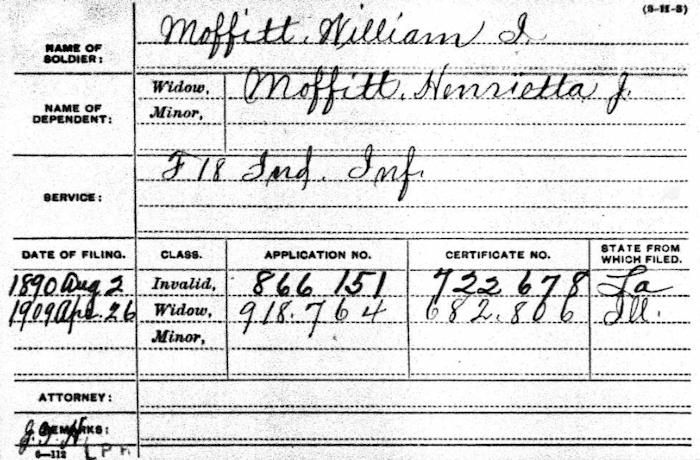 (3-11-3)
NAME OF SOLDIER: Moffitt, William I.
NAME OF DEPENDENT: Widow, Moffitt, Henrietta J.
Minor,
SERVICE: F 18 Ind. Inf.
DATE OF FILING. CLASS. APPLICATION NO. CERTIFICATE NO. STATE FROM WHICH FILED.
1890 Aug 2 Invalid, 866 151 722 678
1909 Apr. 26 Widow, 918.764 682.806 Ill.
Minor,
ATTORNEY:
REMARKS: